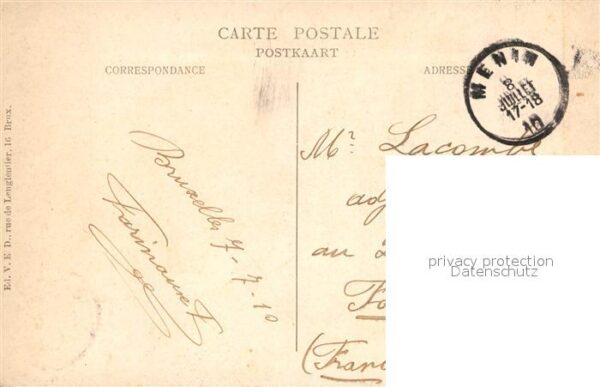 CARTE POSTALE
POSTKAART
CORRESPONDANCE
ADRESSE
MENIN
8
JUILLET
17-18
10
Ed. V. E D., rue de Lenglentier, 16 Brux.
Bruxelles 7-7-10
Mr Lacombe
adj
au
Fo
(Franc
privacy protection
Datenschutz